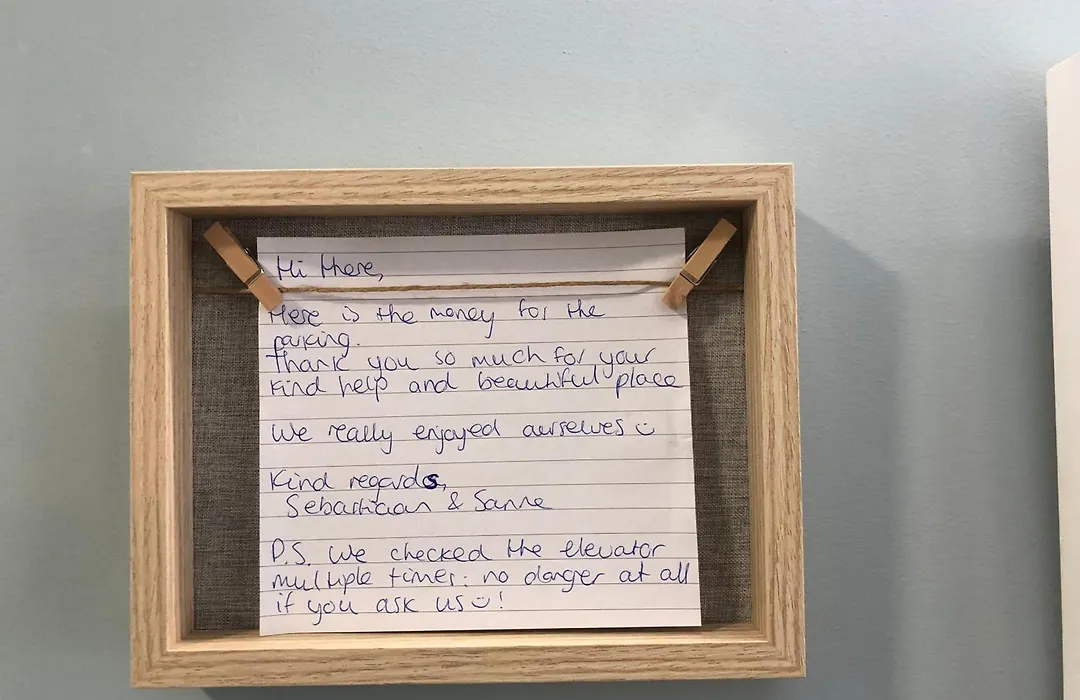 Hi there,
Here is the money for the
parking.
Thank you so much for your
kind help and beautiful place
We really enjoyed ourselves ☺
Kind regards,
Sebastiaan & Sanne
P.S. We checked the elevator
multiple times: no danger at all
if you ask us ☺!